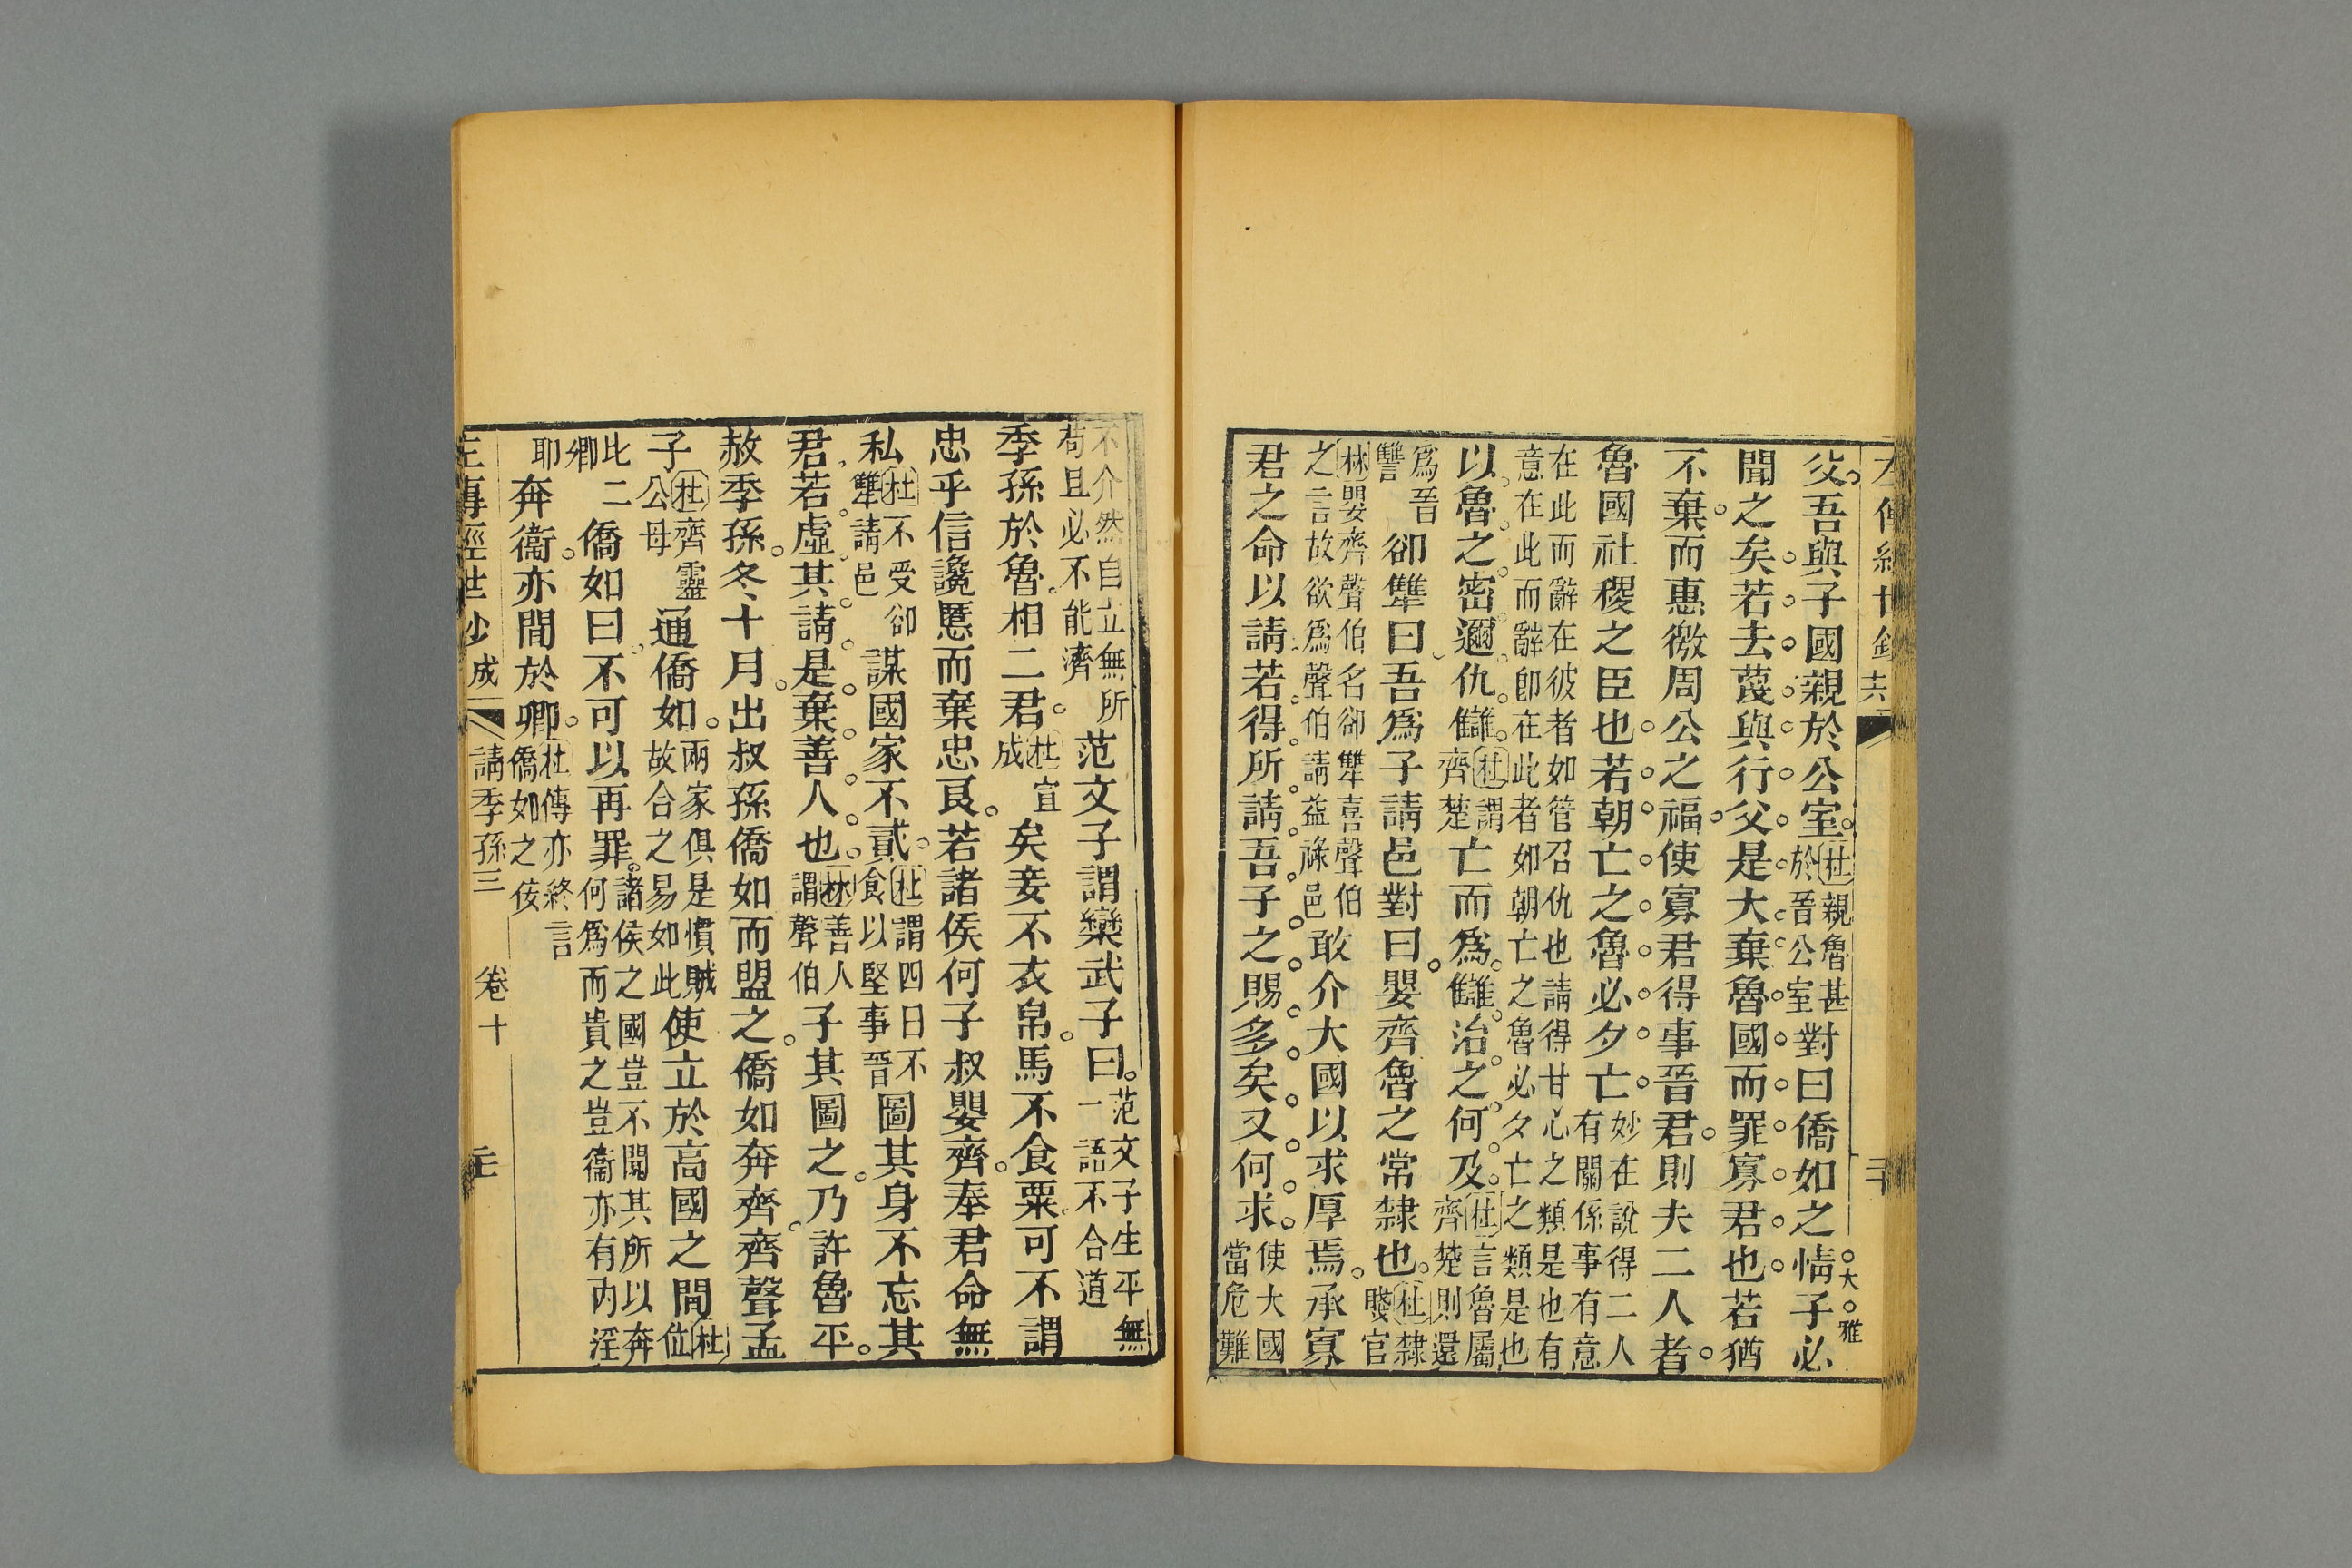 左傳經世鈔
父吾與子國親於公室杜親魯甚於晉公室對曰僑如之情子必
大雅
聞之矣若去蔑與行父是大棄魯國而罪寡君也若猶
不棄而惠徼周公之福使寡君得事晉君則夫二人者
魯國社稷之臣也若朝亡之魯必夕亡妙在說得二人有關係事有意
在此而辭在彼者如管召仇也請得甘心之類是也有
意在此而辭卽在此者如朝亡之魯必夕亡之類是也
以魯之密邇仇讎杜謂齊楚亡而爲讎治之何及杜言魯屬齊楚則還
爲晉讐郤犨曰吾爲子請邑對曰嬰齊魯之常隸也杜隸賤官
林嬰齊聲伯名郤犨喜聲伯之言故欲爲聲伯請益祿邑敢介大國以求厚焉承寡
君之命以請若得所請吾子之賜多矣又何求使大國當危難
不介然自立無所苟且必不能濟范文子謂欒武子曰范文子生平無一語不合道
季孫於魯相二君杜宣成矣妾不衣帛馬不食粟可不謂
忠乎信讒慝而棄忠良若諸侯何子叔嬰齊奉君命無
私杜不受郤犨請邑謀國家不貳杜謂四日不食以堅事晉圖其身不忘其
君若虛其請是棄善人也林善人謂聲伯子其圖之乃許魯平
赦季孫冬十月出叔孫僑如而盟之僑如奔齊齊聲孟
子杜齊靈公母通僑如兩家俱是慣賊故合之易如此使立於高國之間杜位
比二卿僑如曰不可以再罪諸侯之國豈不聞其所以奔何爲而貴之豈衞亦有內淫
耶奔衞亦間於卿杜傳亦終言僑如之佞
左傳經世鈔 成 請季孫三 卷十